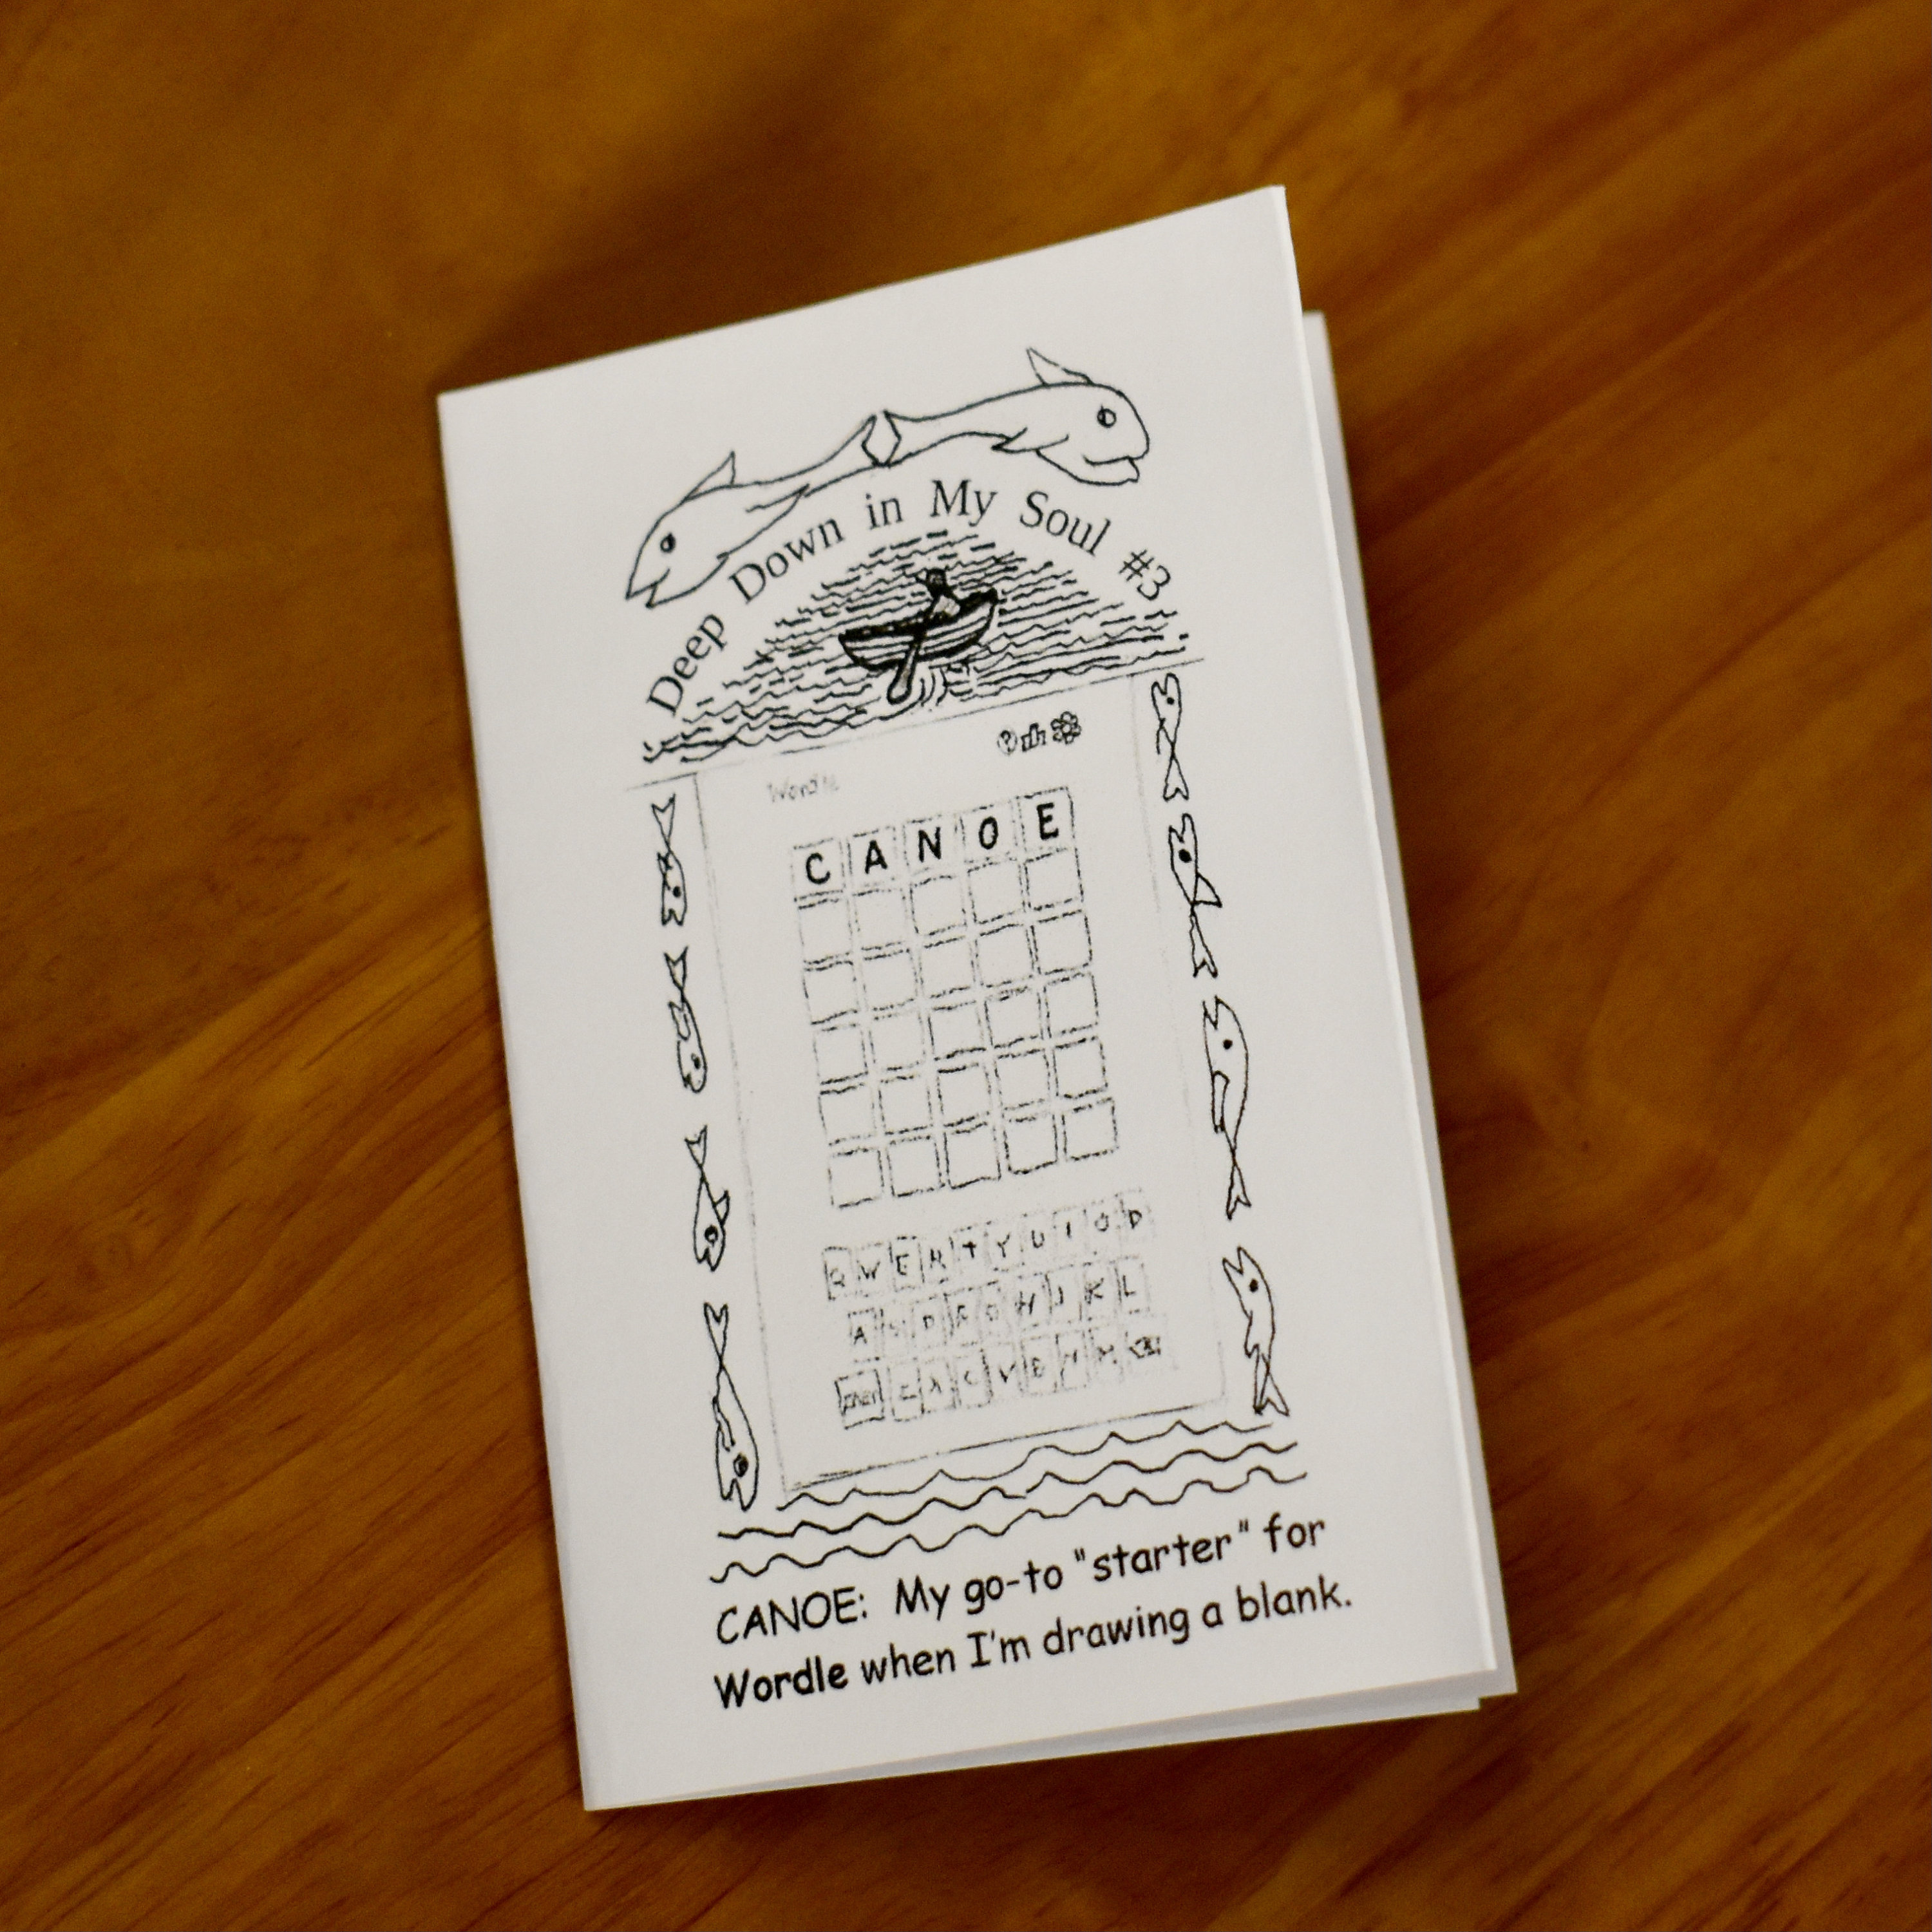 Deep Down in My Soul #3
Wordle
C A N O E
Q W E R T Y U I O P
A S D F G H J K L
C V B N M
CANOE: My go-to "starter" for
Wordle when I'm drawing a blank.